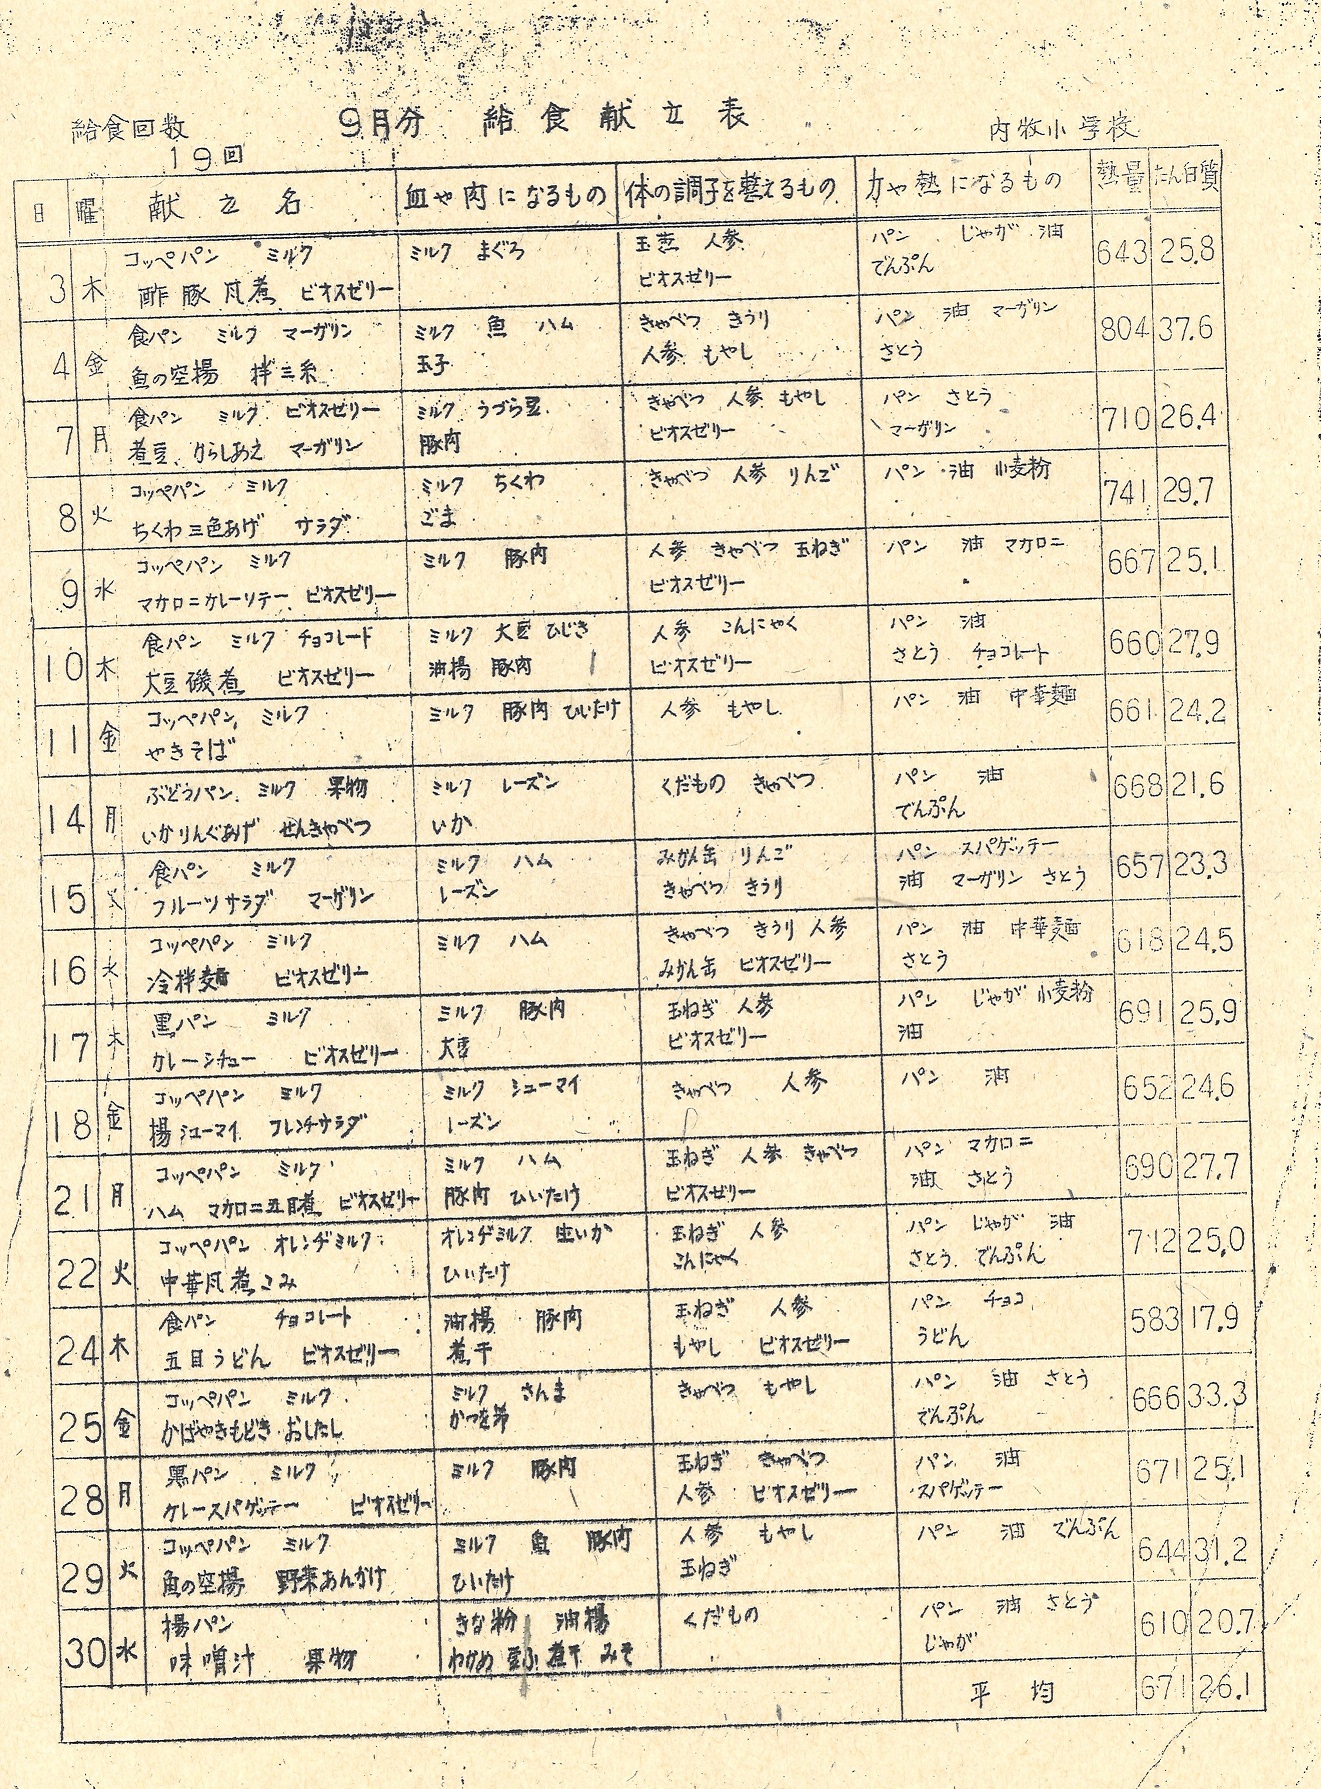 9月分 給食献立表
給食回数 19回
内牧小学校
日 曜 献立名 血や肉になるもの 体の調子を整えるもの 力や熱になるもの 熱量 たん白質
3 木 コッペパン ミルク ミルク まぐろ 玉葱 人参 パン じゃが 油 643 25.8
酢豚風煮 ビオスゼリー ビオスゼリー でんぷん
4 金 食パン ミルク マーガリン ミルク 魚 ハム きゃべつ きうり パン 油 マーガリン 804 37.6
魚の空揚 拌三糸 玉子 人参 もやし さとう
7 月 食パン ミルク ビオスゼリー ミルク うづら豆 きゃべつ 人参 もやし パン さとう 710 26.4
煮豆 からしあえ マーガリン 豚肉 ビオスゼリー マーガリン
8 火 コッペパン ミルク ミルク ちくわ きゃべつ 人参 りんご パン 油 小麦粉 741 29.7
ちくわ三色あげ サラダ ごま
9 水 コッペパン ミルク ミルク 豚肉 人参 きゃべつ 玉ねぎ パン 油 マカロニ 667 25.1
マカロニカレーソテー ビオスゼリー ビオスゼリー
10 木 食パン ミルク チョコレート ミルク 大豆 ひじき 人参 こんにゃく パン 油 660 27.9
大豆磯煮 ビオスゼリー 油揚 豚肉 ビオスゼリー さとう チョコレート
11 金 コッペパン ミルク ミルク 豚肉 ひいたけ 人参 もやし パン 油 中華麺 661 24.2
やきそば
14 月 ぶどうパン ミルク 果物 ミルク レーズン くだもの きゃべつ パン 油 668 21.6
いかりんぐあげ せんきゃべつ いか でんぷん
15 食パン ミルク ミルク ハム みかん缶 りんご パン スパゲッテー 657 23.3
フルーツサラダ マーガリン レーズン きゃべつ きうり 油 マーガリン さとう
16 水 コッペパン ミルク ミルク ハム きゃべつ きうり 人参 パン 油 中華麺 618 24.5
冷拌麺 ビオスゼリー みかん缶 ビオスゼリー さとう
17 木 黒パン ミルク ミルク 豚肉 玉ねぎ 人参 パン じゃが 小麦粉 691 25.9
カレーシチュー ビオスゼリー 大豆 ビオスゼリー 油
18 金 コッペパン ミルク ミルク シューマイ きゃべつ 人参 パン 油 652 24.6
揚シューマイ フレンチサラダ レーズン
21 月 コッペパン ミルク ミルク ハム 玉ねぎ 人参 きゃべつ パン マカロニ 690 27.7
ハム マカロニ五目煮 ビオスゼリー 豚肉 ひいたけ ビオスゼリー 油 さとう
22 火 コッペパン オレンヂミルク オレンヂミルク 生いか 玉ねぎ 人参 パン じゃが 油 712 25.0
中華風煮こみ ひいたけ こんにゃく さとう でんぷん
24 木 食パン チョコレート 油揚 豚肉 玉ねぎ 人参 パン チョコ 583 17.9
五目うどん ビオスゼリー 煮干 もやし ビオスゼリー うどん
25 金 コッペパン ミルク ミルク さんま きゃべつ もやし パン 油 さとう 666 33.3
かばやきもどき おしたし かつを節 でんぷん
28 月 黒パン ミルク ミルク 豚肉 玉ねぎ きゃべつ パン 油 671 25.1
カレースパゲッテー ビオスゼリー 人参 ビオスゼリー スパゲッテー
29 火 コッペパン ミルク ミルク 魚 豚肉 人参 もやし パン 油 でんぷん 644 31.2
魚の空揚 野菜あんかけ ひいたけ 玉ねぎ
30 水 揚パン きな粉 油揚 くだもの パン 油 さとう 610 20.7
味噌汁 果物 わかめ 豆ふ 煮干 みそ じゃが
平均 671 26.1